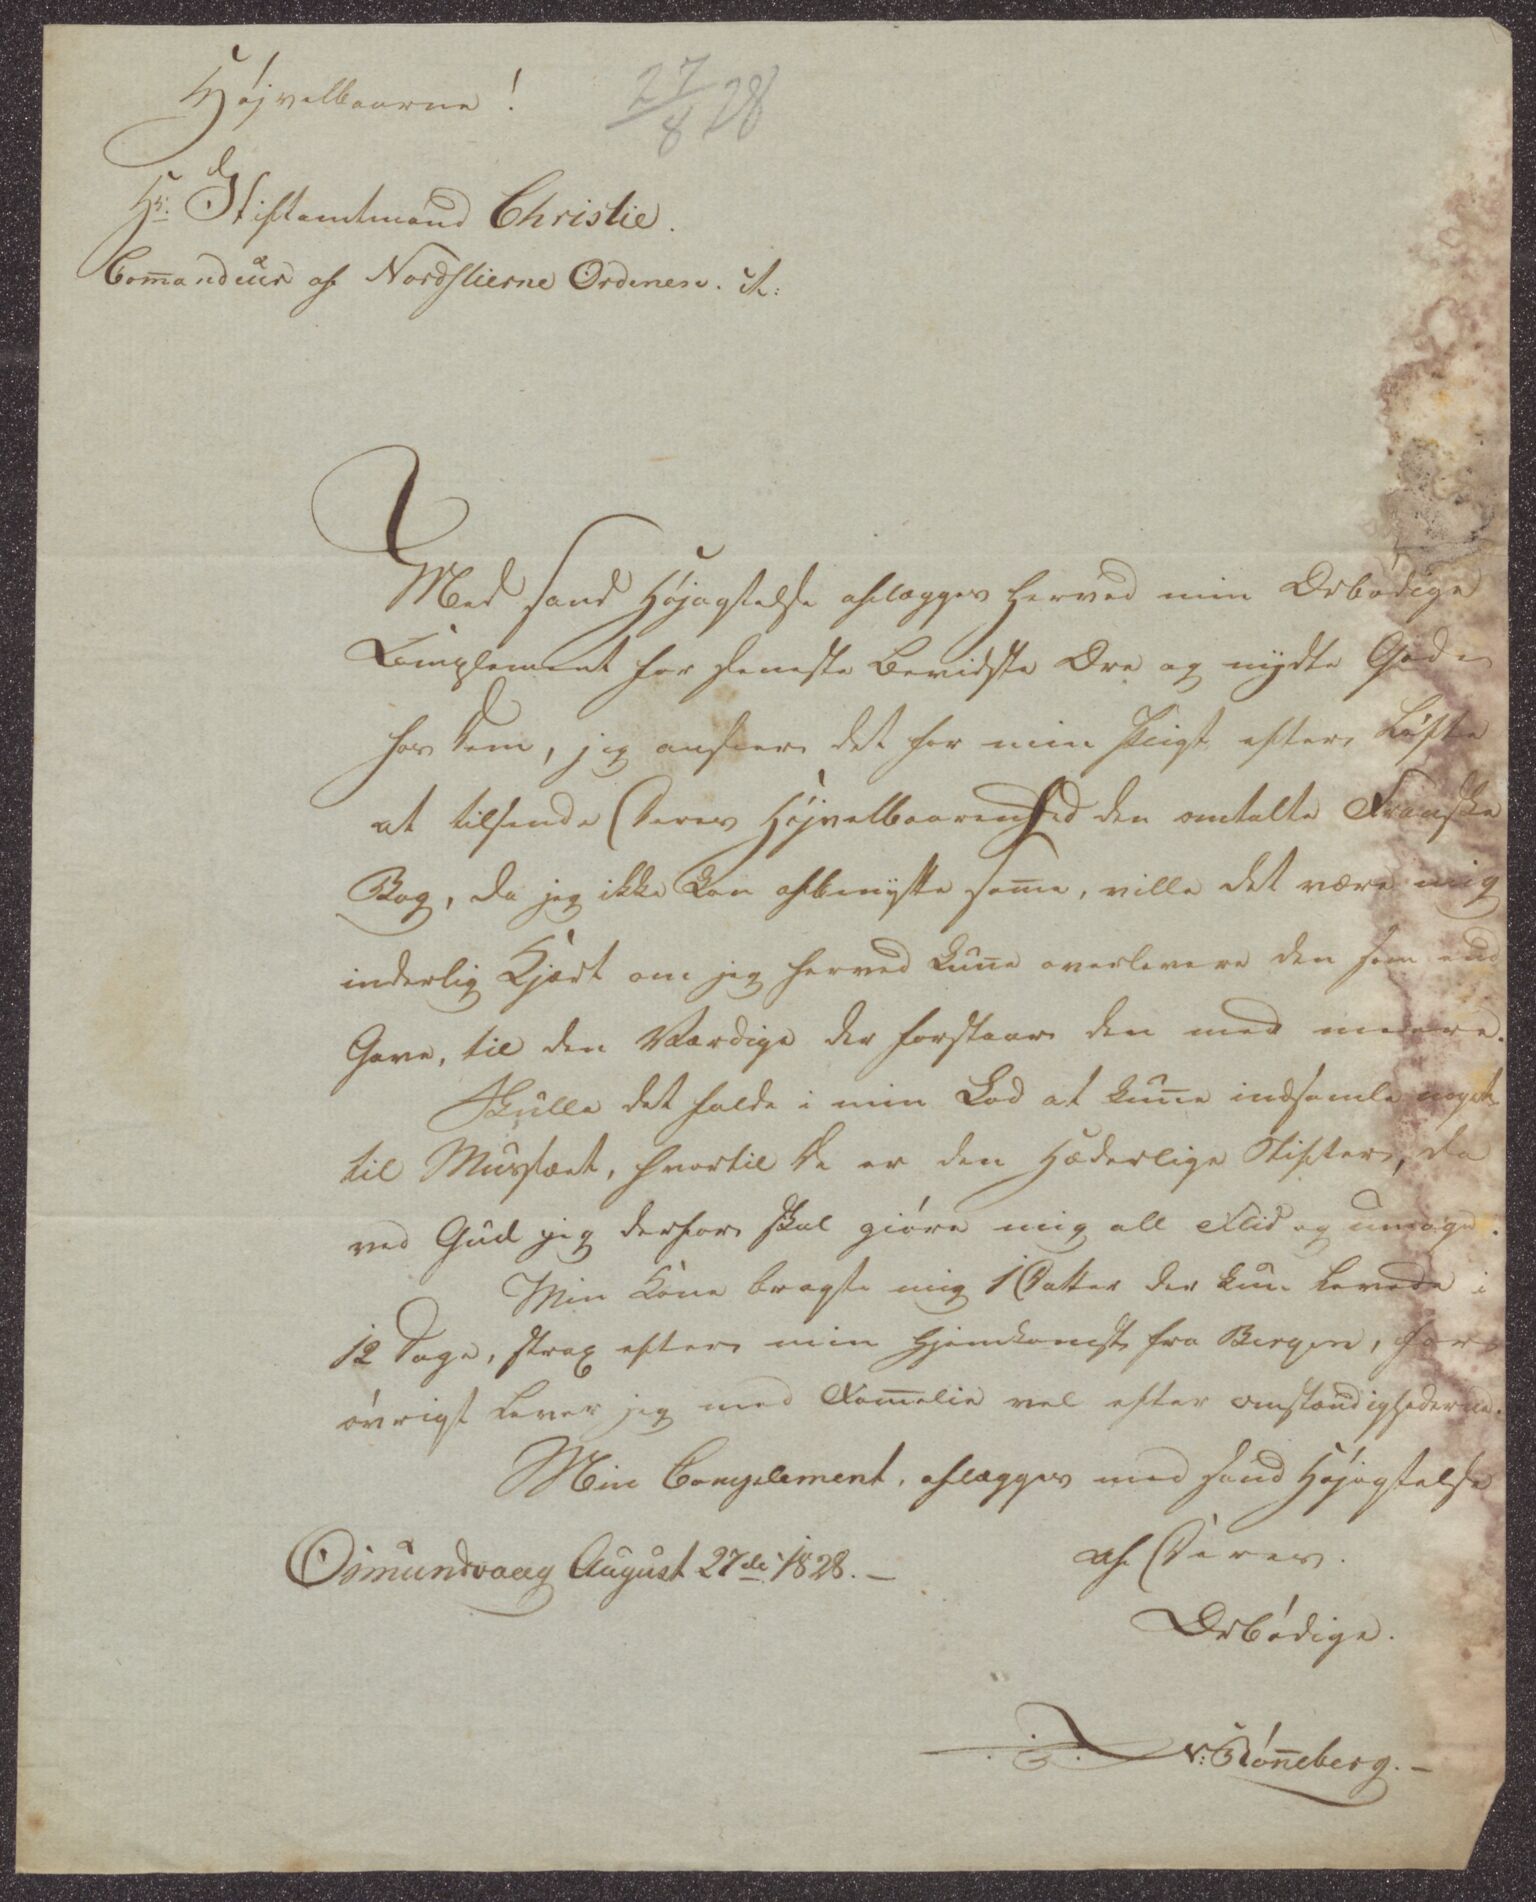 Højvelbaarne!
27/8 28
Hr. Stiftamtmand Christie.
Com̅andeur af Nordstierne Ordenen. &:
Med sand Højagtelse aflægges herved min Ærbødige
Compliment for seneste Beviidste Ære og nydte Gode
hos Dem, jeg anseer det for min Pligt efter Løfte
at tilsende Deres Højvelbaarenhed den omtalte Franske
Bog, da jeg ikke kan afbenytte sam̅e, ville det være mig
inderlig Kjært om jeg herved kun̅e overlevere den som end
Gave, til den Værdige der forstaar den med meere.
Skulle det falde i min Lod at kun̅e indsamle noget
til Musæet, hvortil De er den Hæderlige Stifter, da
ved Gud jeg derfor skal giøre mig all Flid og umage.
Min Kone bragte mig 1 Datter der kun levede i
12 Dage, strax efter min Hjemkomst fra Bergen, for
øvrigt Lever jeg med Fam̅elie vel efter omstændighederne.
Min Compelement, aflægges med sand Højagtelse
af Deres.
Osmundvaag August 27de 1828. —
Ærbødige.
v: Røn̅eberg. —